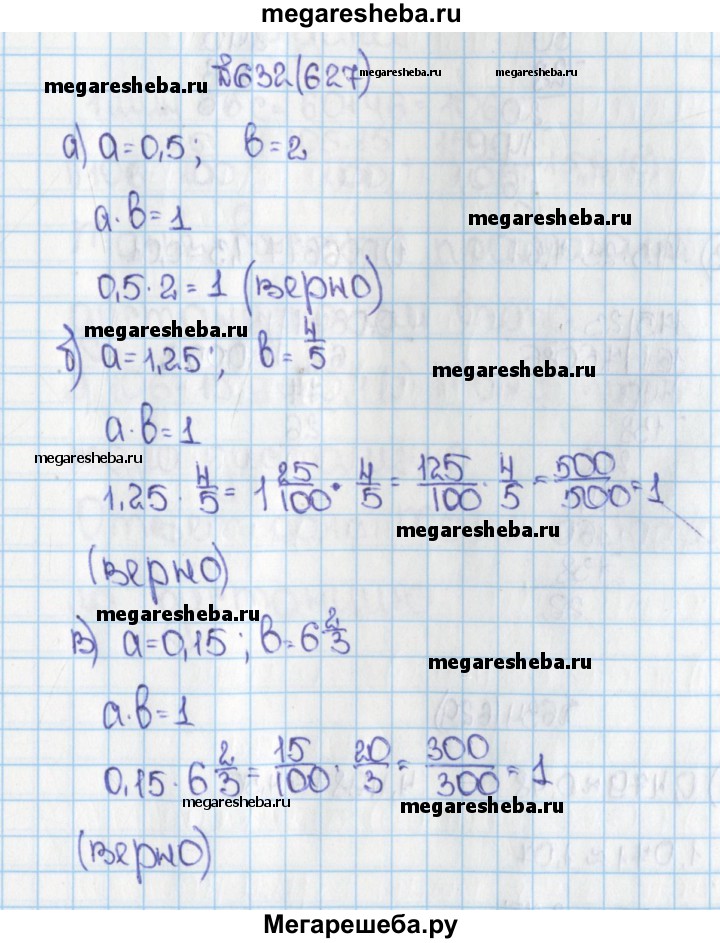 megaresheba.ru
№632(627)
megaresheba.ru
megaresheba.ru
megaresheba.ru
а) a=0,5; в=2
a·в=1
megaresheba.ru
0,5·2=1 (верно)
megaresheba.ru
б) a=1,25; в=4/5
megaresheba.ru
a·в=1
megaresheba.ru
1,25·4/5=1 25/100·4/5=125/100·4/5=500/500=1
megaresheba.ru
(верно)
megaresheba.ru
в) a=0,15; в=6 2/3
megaresheba.ru
a·в=1
0,15·6 2/3=15/100·20/3=300/300=1
megaresheba.ru
megaresheba.ru
(верно)
Мегарешеба.ру